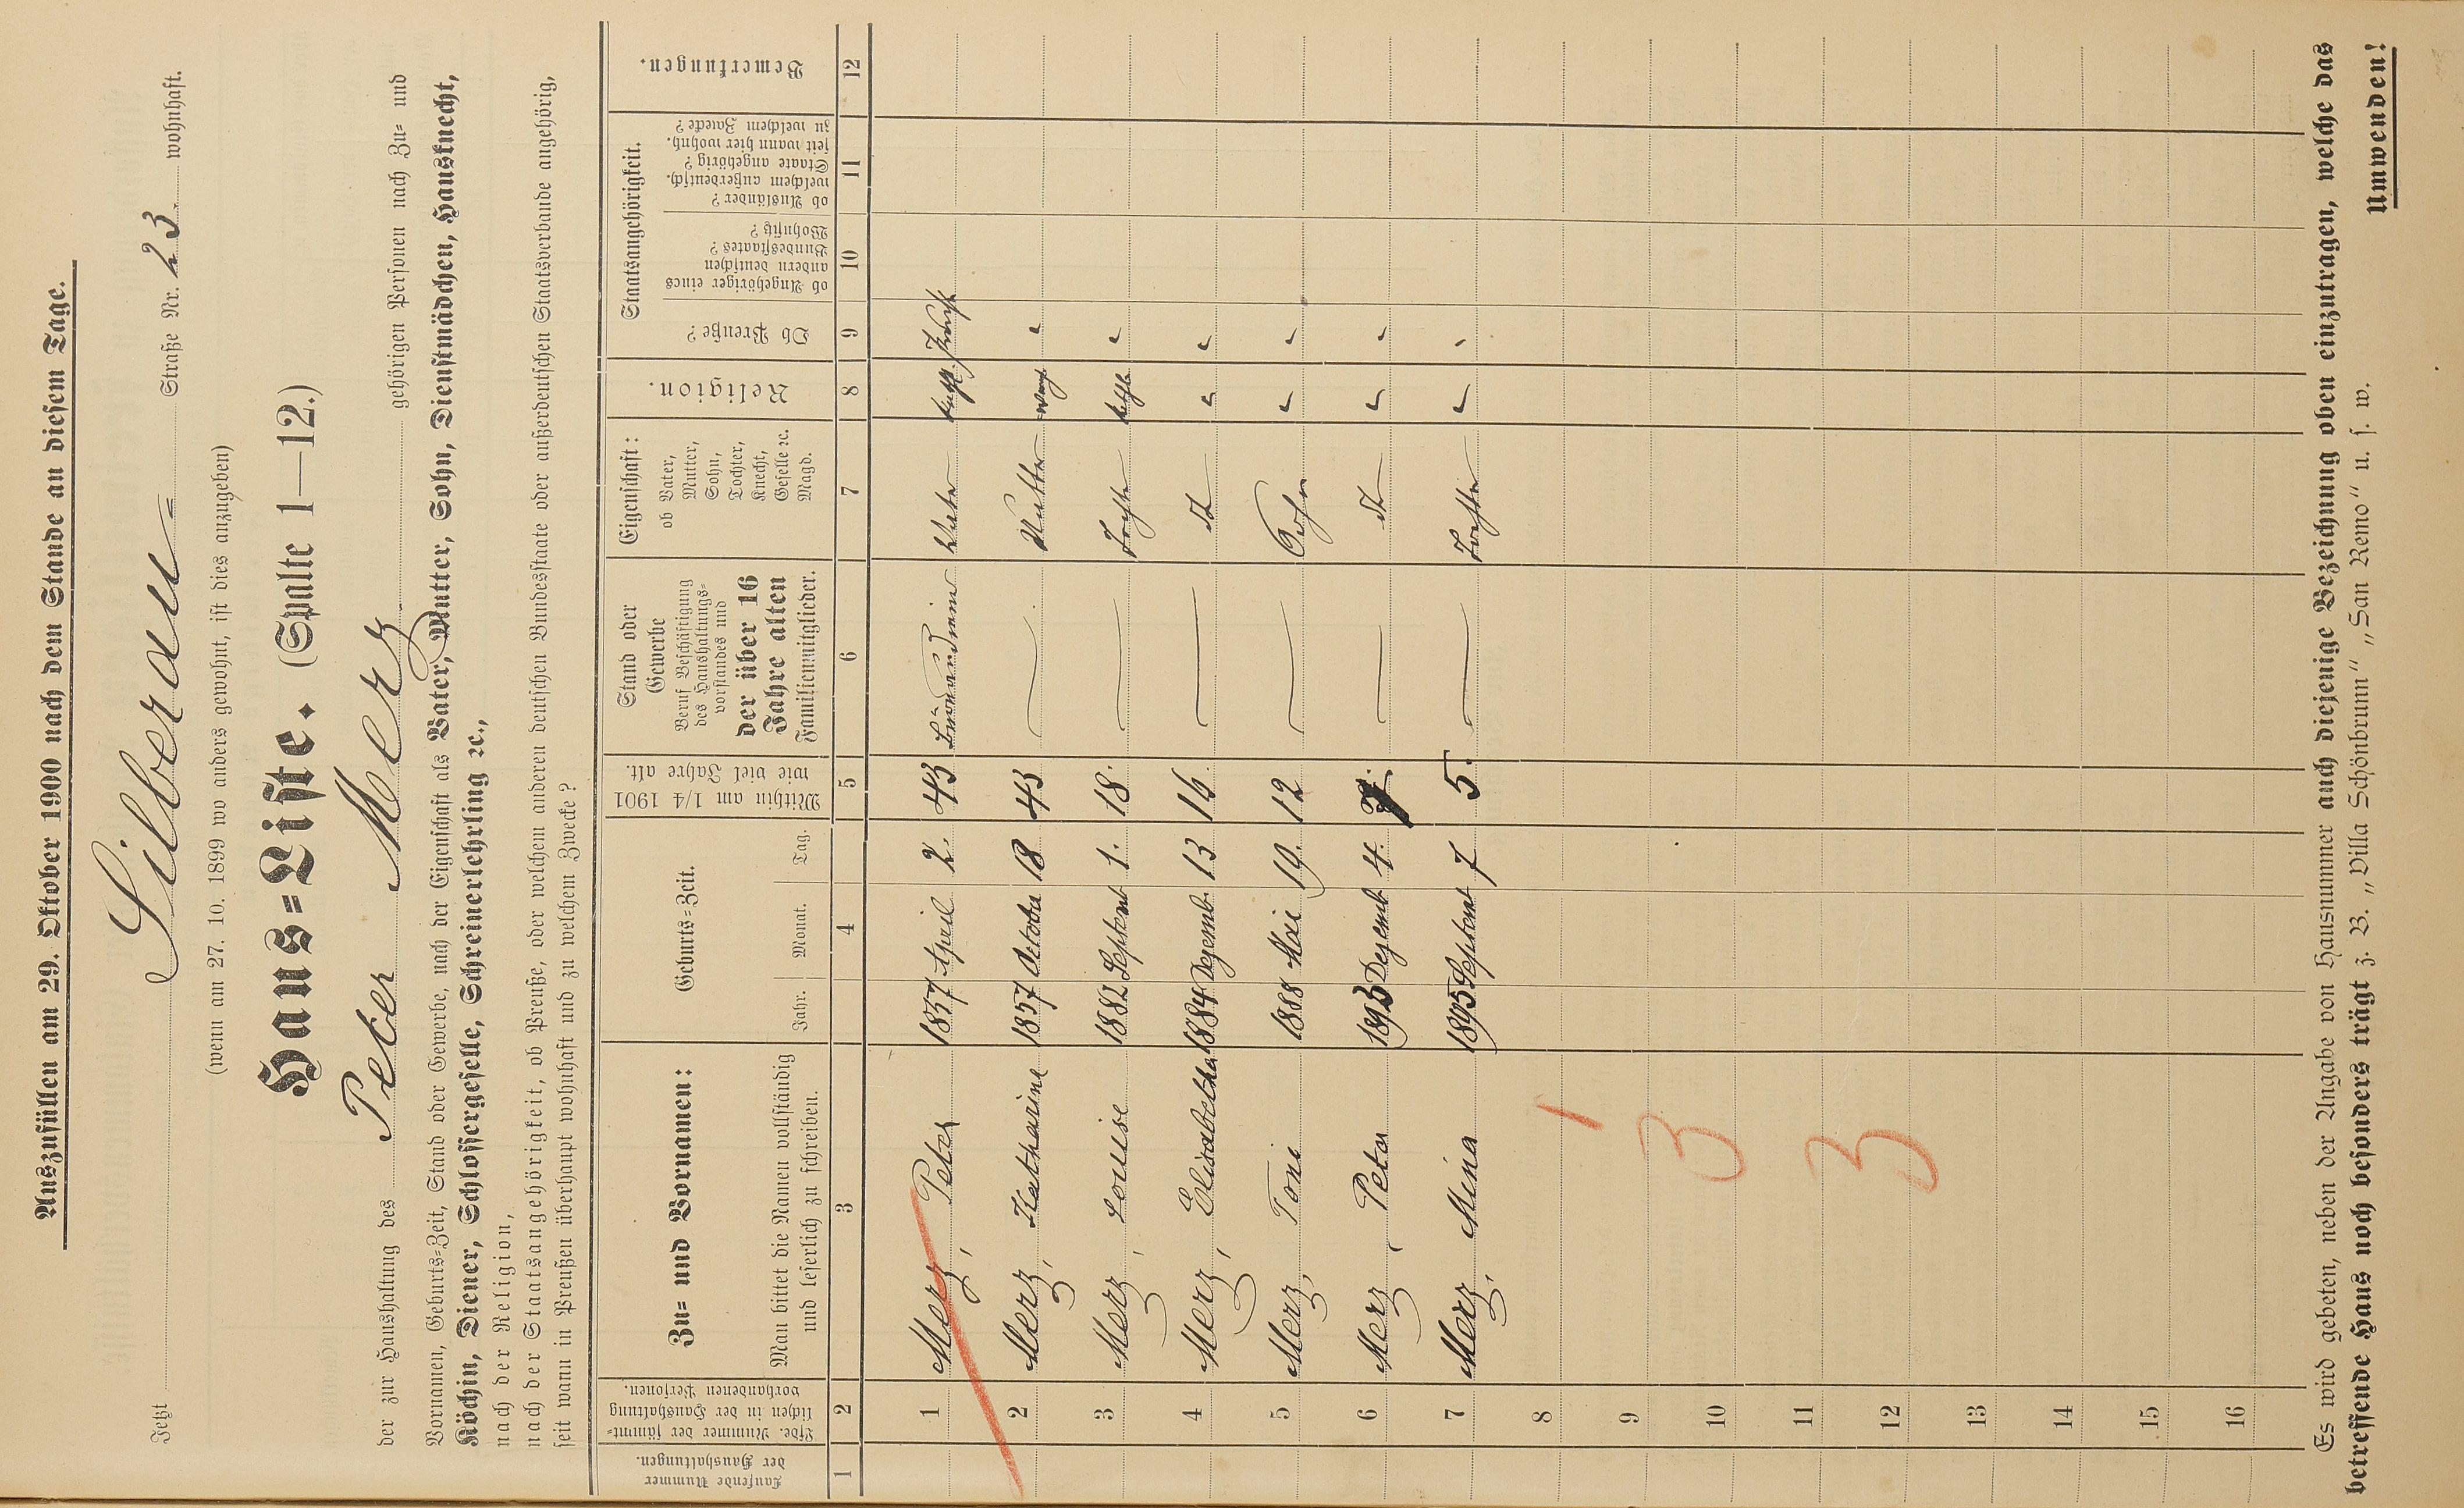 Auszufüllen am 29. Oktober 1900 nach dem Stande an diesem Tage.
Jetzt Silberau Straße Nr. 23 wohnhaft.
(wenn am 27. 10. 1899 wo anders gewohnt, ist dies anzugeben)
Haus=Liste. (Spalte 1—12.)
der zur Haushaltung des Peter Merz gehörigen Personen nach Zu= und
Vornamen, Geburts=Zeit, Stand oder Gewerbe, nach der Eigenschaft als Vater, Mutter, Sohn, Dienstmädchen, Hausknecht,
Köchin, Diener, Schlossergeselle, Schreinerlehrling ꝛc.,
nach der Religion,
nach der Staatsangehörigkeit, ob Preuße, oder welchem anderen deutschen Bundesstaate oder außerdeutschen Staatsverbande angehörig,
seit wann in Preußen überhaupt wohnhaft und zu welchem Zwecke?
Laufende Nummer der Haushaltungen.
Lfde. Nummer der sämmt=lichen in der Haushaltung vorhandenen Personen.
Zu= und Vornamen:
Man bittet die Namen vollständig und leserlich zu schreiben.
Geburts=Zeit.
Jahr. Monat. Tag.
Mithin am 1/4 1901 wie viel Jahre alt.
Stand oder Gewerbe
Beruf Beschäftigung des Haushaltungs=vorstandes und
der über 16 Jahre alten
Familienmitglieder.
Eigenschaft:
ob Vater, Mutter, Sohn, Tochter, Knecht, Geselle ꝛc. Magd.
Religion.
Staatsangehörigkeit.
Ob Preuße?
ob Angehöriger eines andern deutschen Bundesstaates? Wohnsitz?
ob Ausländer? welchem außerdeutsch. Staate angehörig? seit wann hier wohnh. zu welchem Zwecke?
Bemerkungen.
1 2 3 4 5 6 7 8 9 10 11 12
1 Merz, Peter 1857 April 2. 43 Vater kath. Preuße
2 Merz, Katharine 1857 October 18 43 — Mutter evang. "
3 Merz, Louise 1882 Septemb 1. 18. — Tochter kath. "
4 Merz, Elisabetha 1884 Dezemb. 13 16. — dt " "
5 Merz, Toni 1888 Mai 19. 12 — Sohn " "
6 Merz, Peter 1893 Dezemb 4. 7. — dt " "
7 Merz, Mina 1895 Septemb 7 5. — Tochter " "
8
9
10 3
11
12 3
13
14
15
16
Es wird gebeten, neben der Angabe von Hausnummer auch diejenige Bezeichnung oben einzutragen, welche das
betreffende Haus noch besonders trägt z. B. „Villa Schönbrunn" „San Remo" u. s. w.
Umwenden!